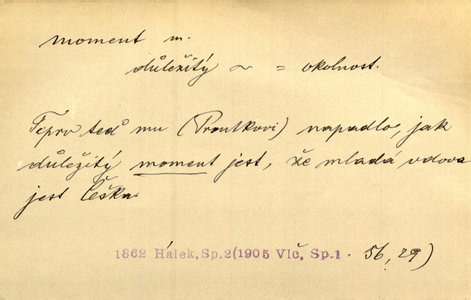 moment m.
důležitý ~ = okolnost.
Teprv teď mu (Proutkovi) napadlo, jak
důležitý moment jest, že mladá vdova
jest Češka.
1862 Hálek, Sp.2(1905 Vlč, Sp.1 . 56, 29)